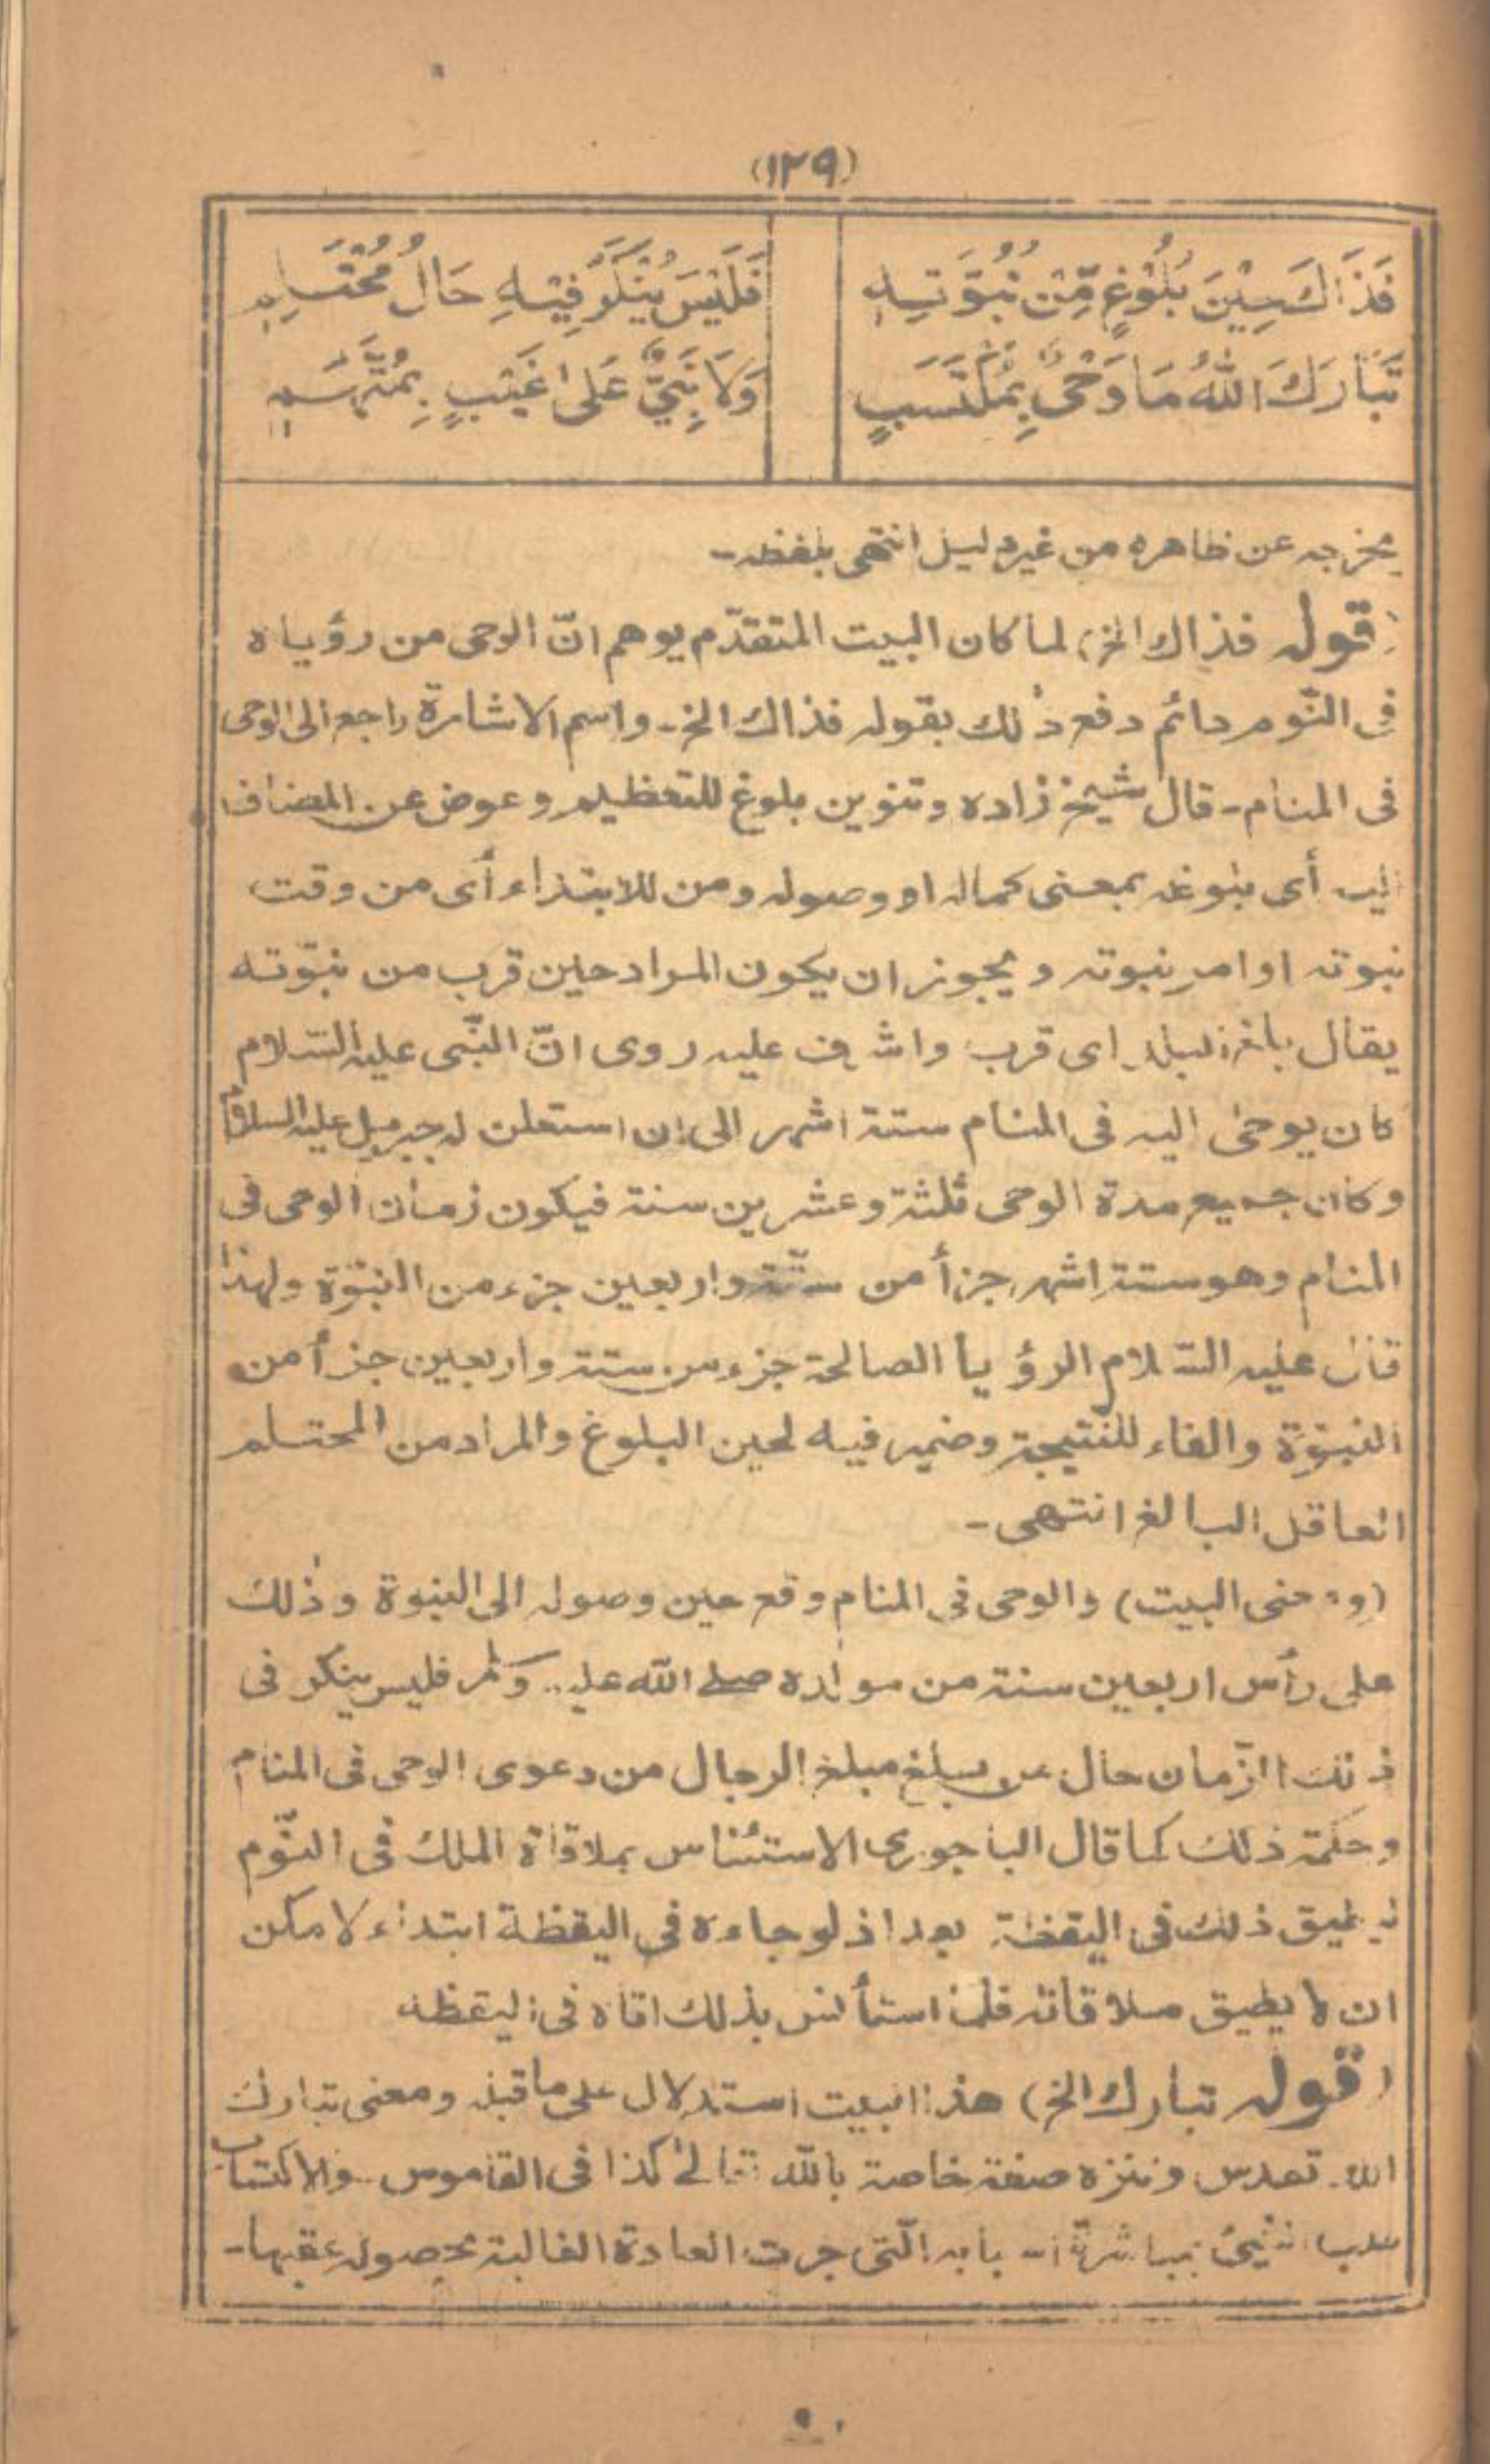 (١٢٩)
فَذَاكَ حِيْنَ بُلُوْغٍ مِّنْ نُبُوَّتِهٖ فَلَيْسَ يُنْكَرُ فِيْهِ حَالُ مُحْتَلِمٖ
تَبَارَكَ اللّٰهُ مَا وَحْىٌ بِمُكْتَسَبٍ وَلَا نَبِيٌّ عَلٰى غَيْبٍ بِمُتَّهَمٖ
يخرجه عن ظاهره من غير دليل انتهى بلفظه-
(قوله فذاك الخ) لما كان البيت المتقدّم يوهم انّ الوحى من رؤياه
فى النّوم دائم دفع ذٰلك بقوله فذاك الخ- واسم الاشارة راجع الى الوحى
فى المنام- قال شيخ زاده وتنوين بلوغ للتعظيم وعوض عن المضاف
اليه أى بلوغه بمعنى كماله او وصوله ومن للابتداء أى من وقت
نبوته او امر نبوته ويجوز ان يكون المراد حين قرب من نبوّته
يقال بلغ البلد اى قرب واشرف عليه روى انّ النّبى عليه السّلام
كان يوحىٰ اليه فى المنام ستة اشهر الى ان استعلن له جبرئيل عليه السلام
وكان جميع مدة الوحى ثلثة وعشرين سنة فيكون زمان الوحى فى
المنام وهو ستة اشهر جزأ من ستّة واربعين جزء من النبوّة ولهذا
قال عليه السّلام الرؤيا الصالحة جزء من ستة واربعين جزأ من
النبوّة والفاء للنّتيجة وضمير فيه لحين البلوغ والمراد من المحتلم
العاقل البالغ انتهى-
(ومعنى البيت) والوحى فى المنام وقع حين وصوله الى النبوة وذٰلك
على رأس اربعين سنة من مولده صلى اللّٰه عليه وسلم فليس ينكر فى
ذلك الزّمان حال من يبلغ مبلغ الرجال من دعوى الوحى فى المنام
وحكمة ذلك كما قال الباجورى الاستئناس بملاقاة الملك فى النّوم
ليطيق ذلك فى اليقظة بعد اذ لو جاءه فى اليقظة ابتداء لامكن
ان لا يطيق ملاقاته فلما استأنس بذلك اتاه فى اليقظه
(قوله تبارك الخ) هذا البيت استدلال على ما قبله ومعنى تبارك
اللّٰه تقدس وتنزه صفة خاصة باللّٰه تعالىٰ كذا فى القاموس والاكتساب
طلب الشيئ بمباشرة اسبابه الّتى جرت العادة الغالبة بحصوله عقبها-